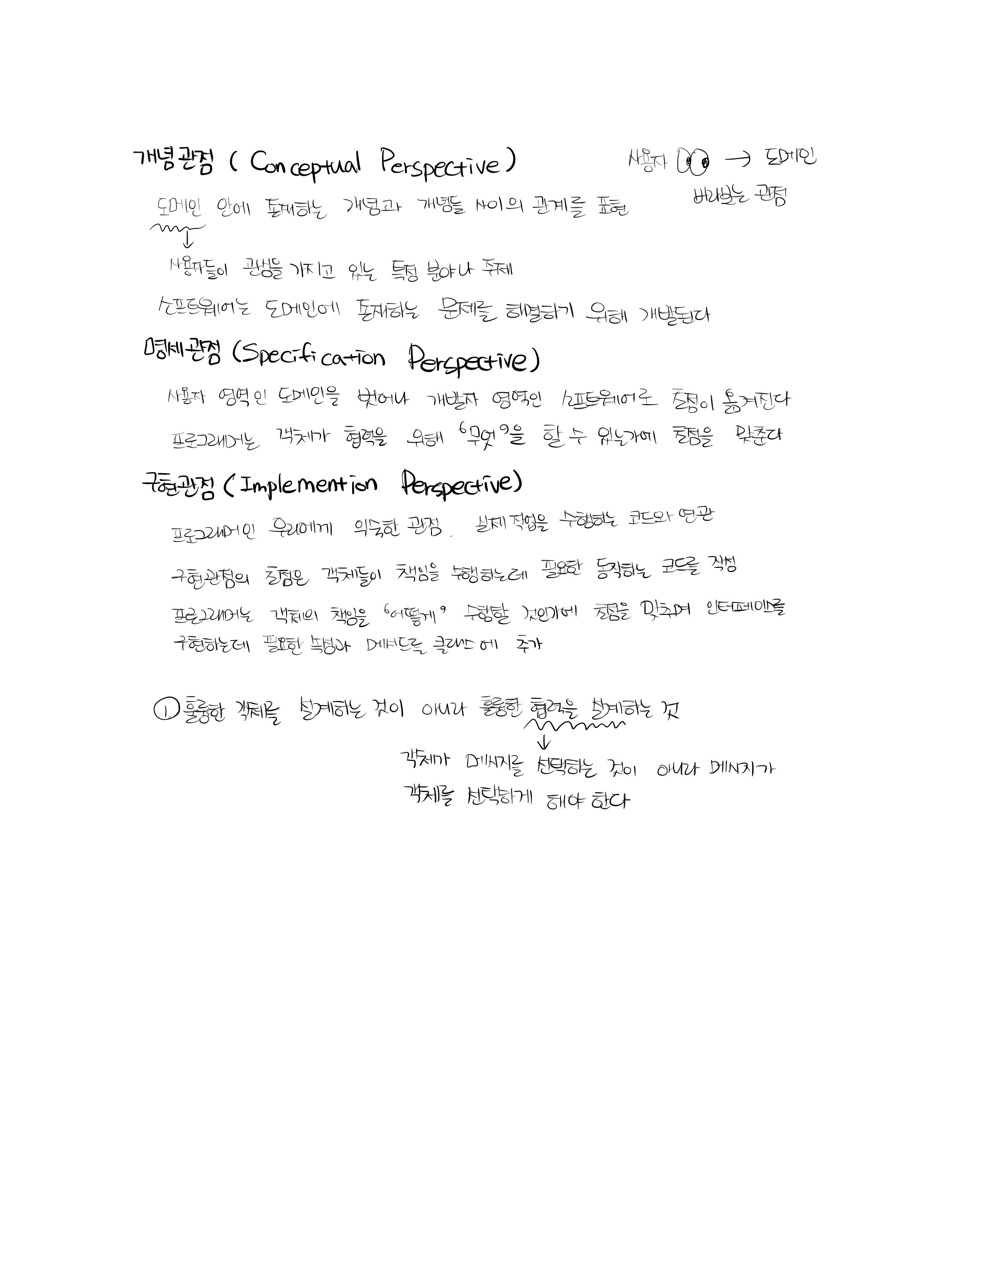 개념관점 (Conceptual Perspective)
사용자 → 도메인
바라보는 관점
도메인 안에 존재하는 개념과 개념들 사이의 관계를 표현
사용자들이 관심을 가지고 있는 특정 분야나 주제
소프트웨어는 도메인에 존재하는 문제를 해결하기 위해 개발된다
명세관점 (Specification Perspective)
사용자 영역인 도메인을 벗어나 개발자 영역인 소프트웨어로 초점이 옮겨진다
프로그래머는 객체가 협력을 위해 '무엇'을 할 수 있는가에 초점을 맞춘다
구현관점 (Implemention Perspective)
프로그래머인 우리에게 익숙한 관점. 실제 작업을 수행하는 코드와 연관
구현관점의 초점은 객체들이 책임을 수행하는데 필요한 동작하는 코드를 작성
프로그래머는 객체의 책임을 '어떻게' 수행할 것인가에 초점을 맞추며 인터페이스를
구현하는데 필요한 속성과 메서드를 클래스에 추가
① 훌륭한 객체를 설계하는 것이 아니라 훌륭한 협력을 설계하는 것
객체가 메시지를 선택하는 것이 아니라 메시지가
객체를 선택하게 해야 한다